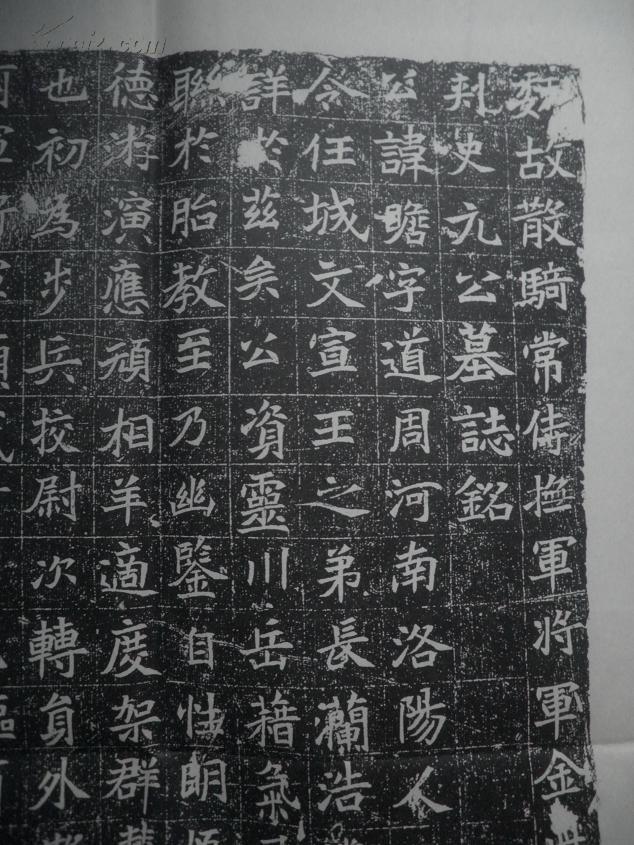 魏故散騎常侍撫軍將軍金
刾史元公墓誌銘
公諱瞻字道周河南洛陽人
令任城文宣王之弟長瀾浩
詳於茲矣公資靈川岳藉氣
聮於胎教至乃幽鋻自性朗
德游演應頑相羊適度架群
也初為步兵挍尉次轉員外